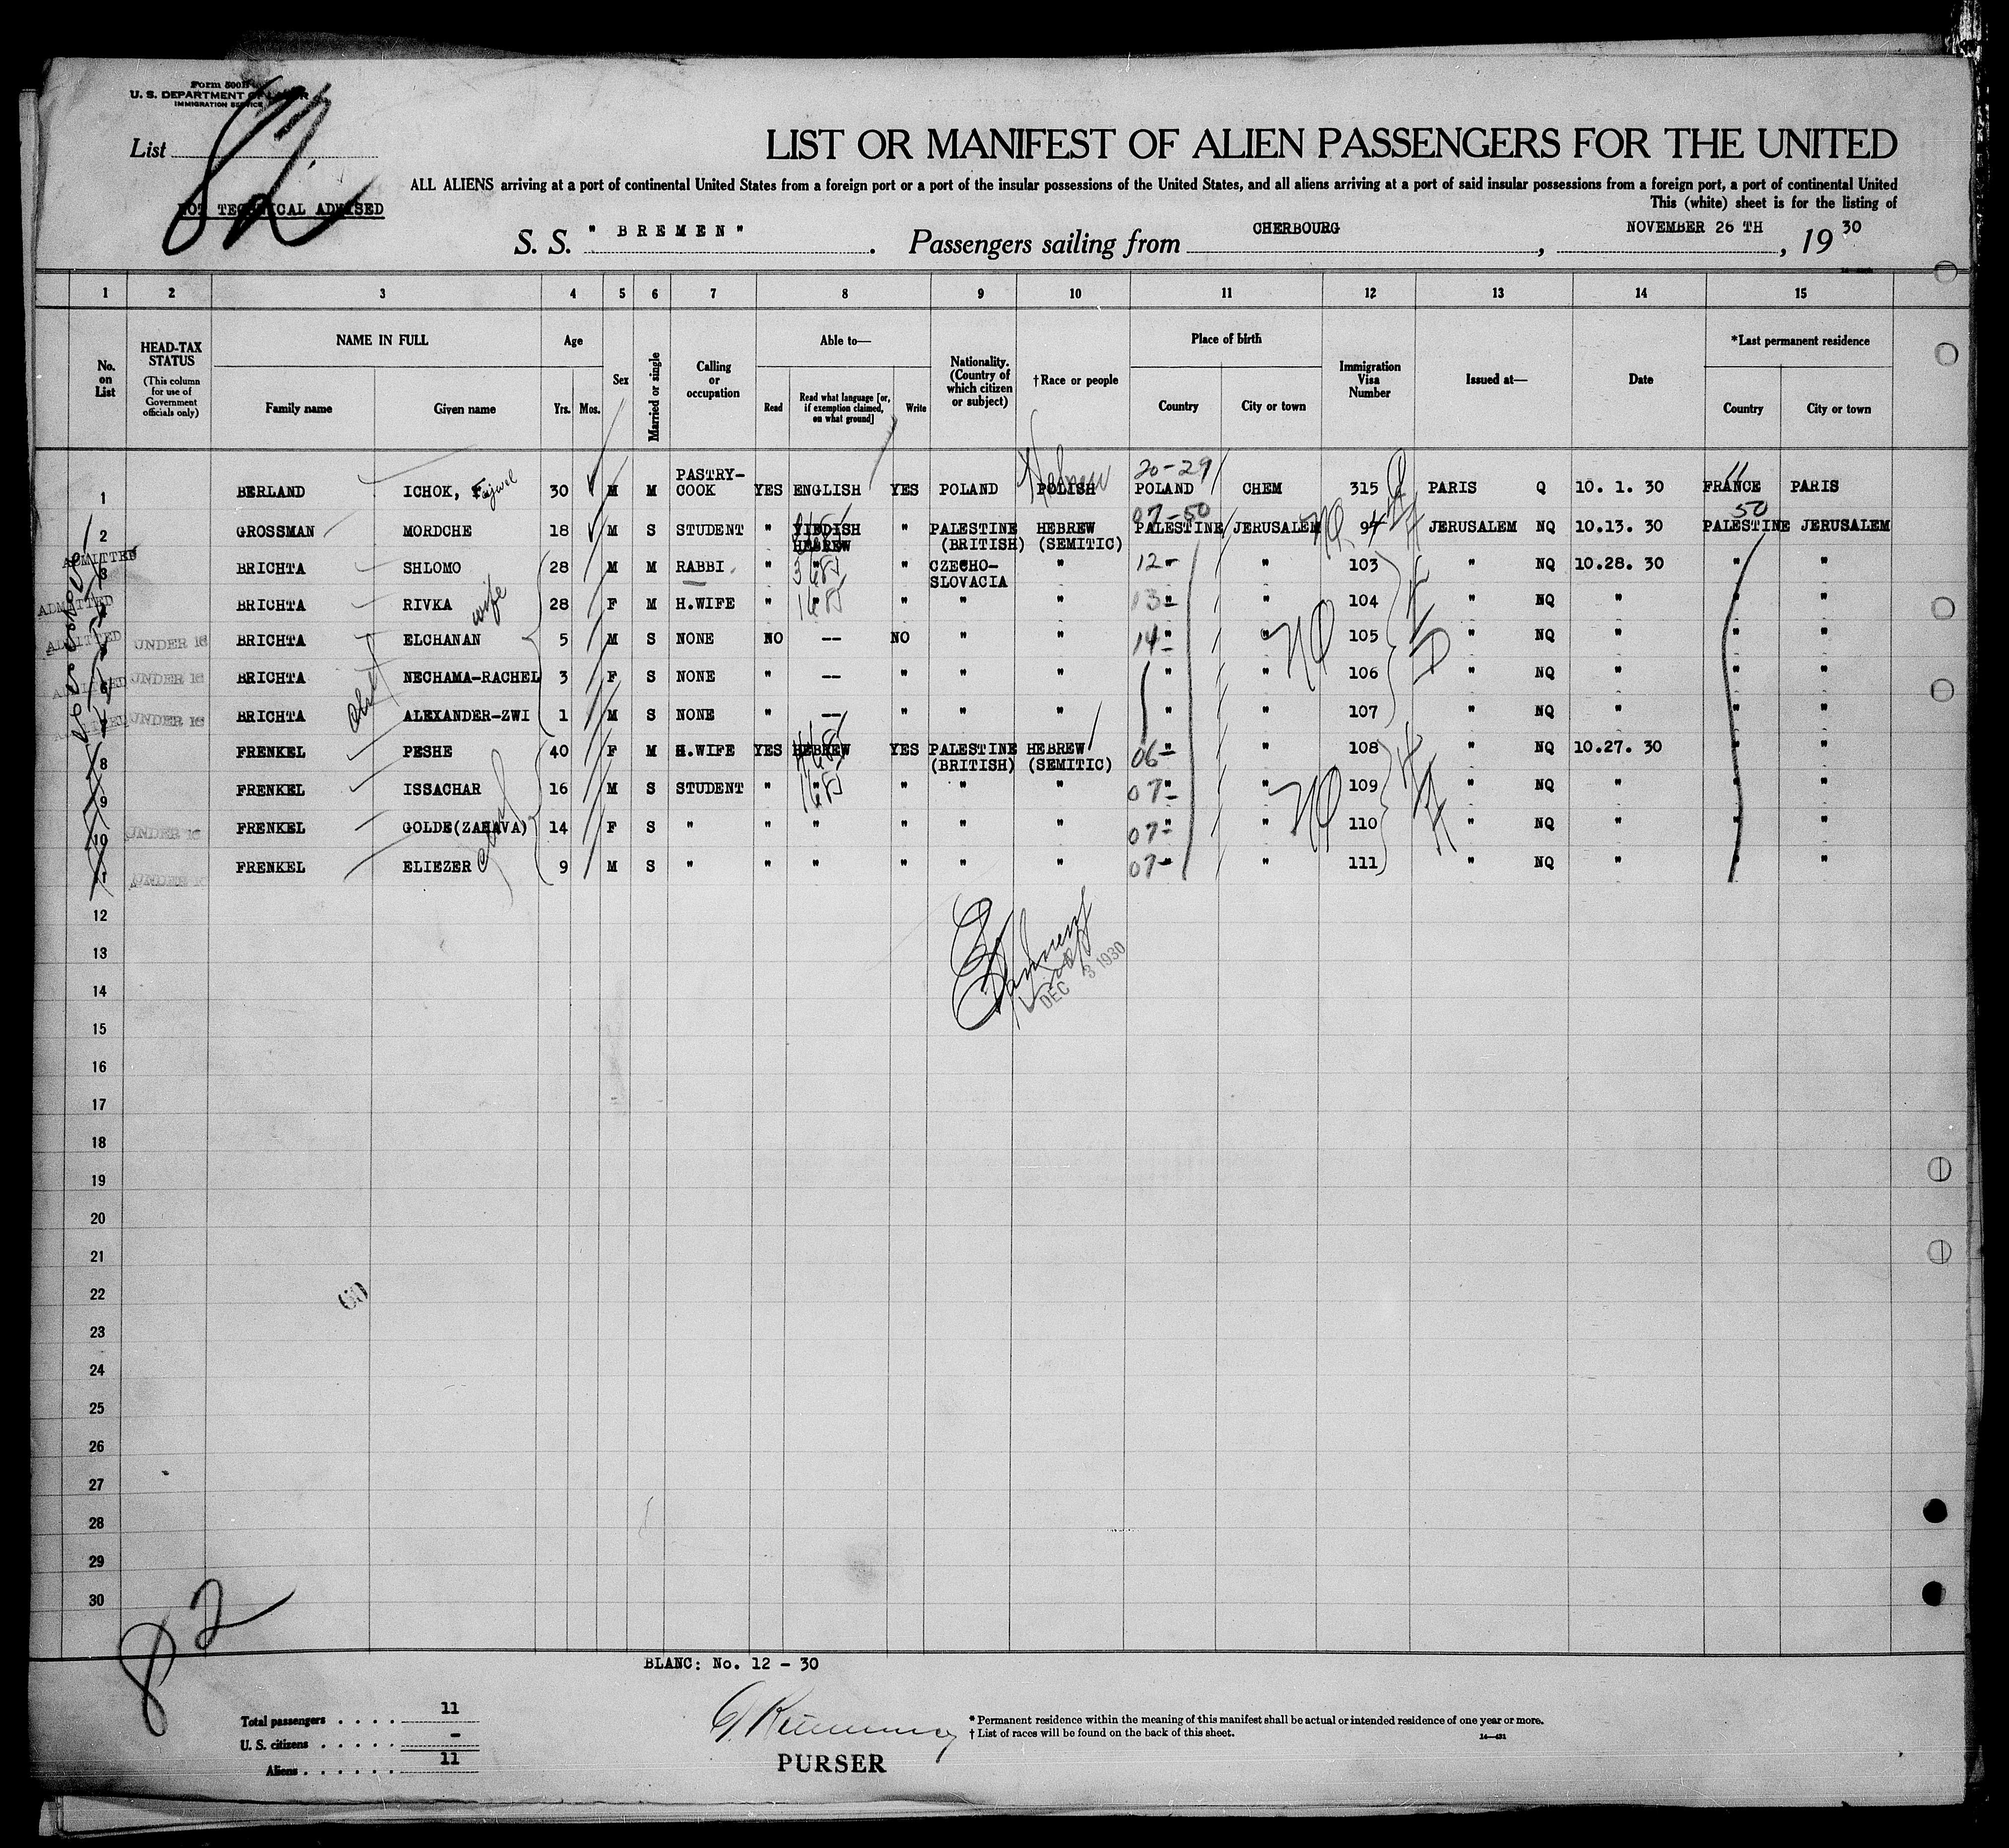 Form 500B
U. S. DEPARTMENT OF LABOR
IMMIGRATION SERVICE
List
82
NOT TECHNICAL ADVISED
LIST OR MANIFEST OF ALIEN PASSENGERS FOR THE UNITED
ALL ALIENS arriving at a port of continental United States from a foreign port or a port of the insular possessions of the United States, and all aliens arriving at a port of said insular possessions from a foreign port, a port of continental United
This (white) sheet is for the listing of
S. S. " BREMEN " . Passengers sailing from CHERBOURG , NOVEMBER 26 TH , 19 30
1 2 3 4 5 6 7 8 9 10 11 12 13 14 15
No. on List
HEAD-TAX STATUS (This column for use of Government officials only)
NAME IN FULL
Family name Given name
Age
Yrs. Mos.
Sex
Married or single
Calling or occupation
Able to—
Read
Read what language [or, if exemption claimed, on what ground]
Write
Nationality. (Country of which citizen or subject)
†Race or people
Place of birth
Country City or town
Immigration Visa Number
Issued at—
Date
*Last permanent residence
Country City or town
1 BERLAND ICHOK, Fajwel 30 M M PASTRY-COOK YES ENGLISH YES POLAND POLISH Hebrew 20-29 POLAND CHEM 315 PARIS Q 10. 1. 30 FRANCE PARIS
2 GROSSMAN MORDCHE 18 M S STUDENT " YIDDISH HEBREW " PALESTINE (BRITISH) HEBREW (SEMITIC) 07-50 PALESTINE JERUSALEM NQ 94 JERUSALEM NQ 10.13. 30 50 PALESTINE JERUSALEM
ADMITTED 3 BRICHTA SHLOMO 28 M M RABBI " " " CZECHO-SLOVACIA " 12- " 103 " NQ 10.28. 30 " "
ADMITTED 4 BRICHTA RIVKA wife 28 F M H.WIFE " " " " " 13- " 104 " NQ " " "
ADMITTED 5 UNDER 16 BRICHTA ELCHANAN 5 M S NONE NO -- NO " " 14- " NQ 105 " NQ " " "
ADMITTED 6 UNDER 16 BRICHTA NECHAMA-RACHEL 3 F S NONE " -- " " " " 106 " NQ " " "
ADMITTED 7 UNDER 16 BRICHTA ALEXANDER-ZWI 1 M S NONE " -- " " " " 107 " NQ " " "
8 FRENKEL PESHE 40 F M H.WIFE YES HEBREW YES PALESTINE (BRITISH) HEBREW (SEMITIC) 06- " " 108 " NQ 10.27. 30 " "
9 FRENKEL ISSACHAR 16 M S STUDENT " " " " " 07- " " NQ 109 " NQ " " "
10 UNDER 16 FRENKEL GOLDE(ZAHAVA) 14 F S " " " " " " 07- " " 110 " NQ " " "
11 UNDER 16 FRENKEL ELIEZER 9 M S " " " " " " 07- " " 111 " NQ " " "
12
13
DEC 3 1930
14
15
16
17
18
19
20
21
22
60
23
24
25
26
27
28
29
30
82
BLANC: No. 12 - 30
Total passengers . . . . 11
U. S. citizens . . . . . -
Aliens . . . . . . 11
PURSER
* Permanent residence within the meaning of this manifest shall be actual or intended residence of one year or more.
† List of races will be found on the back of this sheet.
14—431